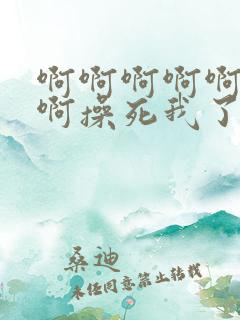 啊啊啊啊啊
啊操死我了
桑迪
未经同意禁止转载